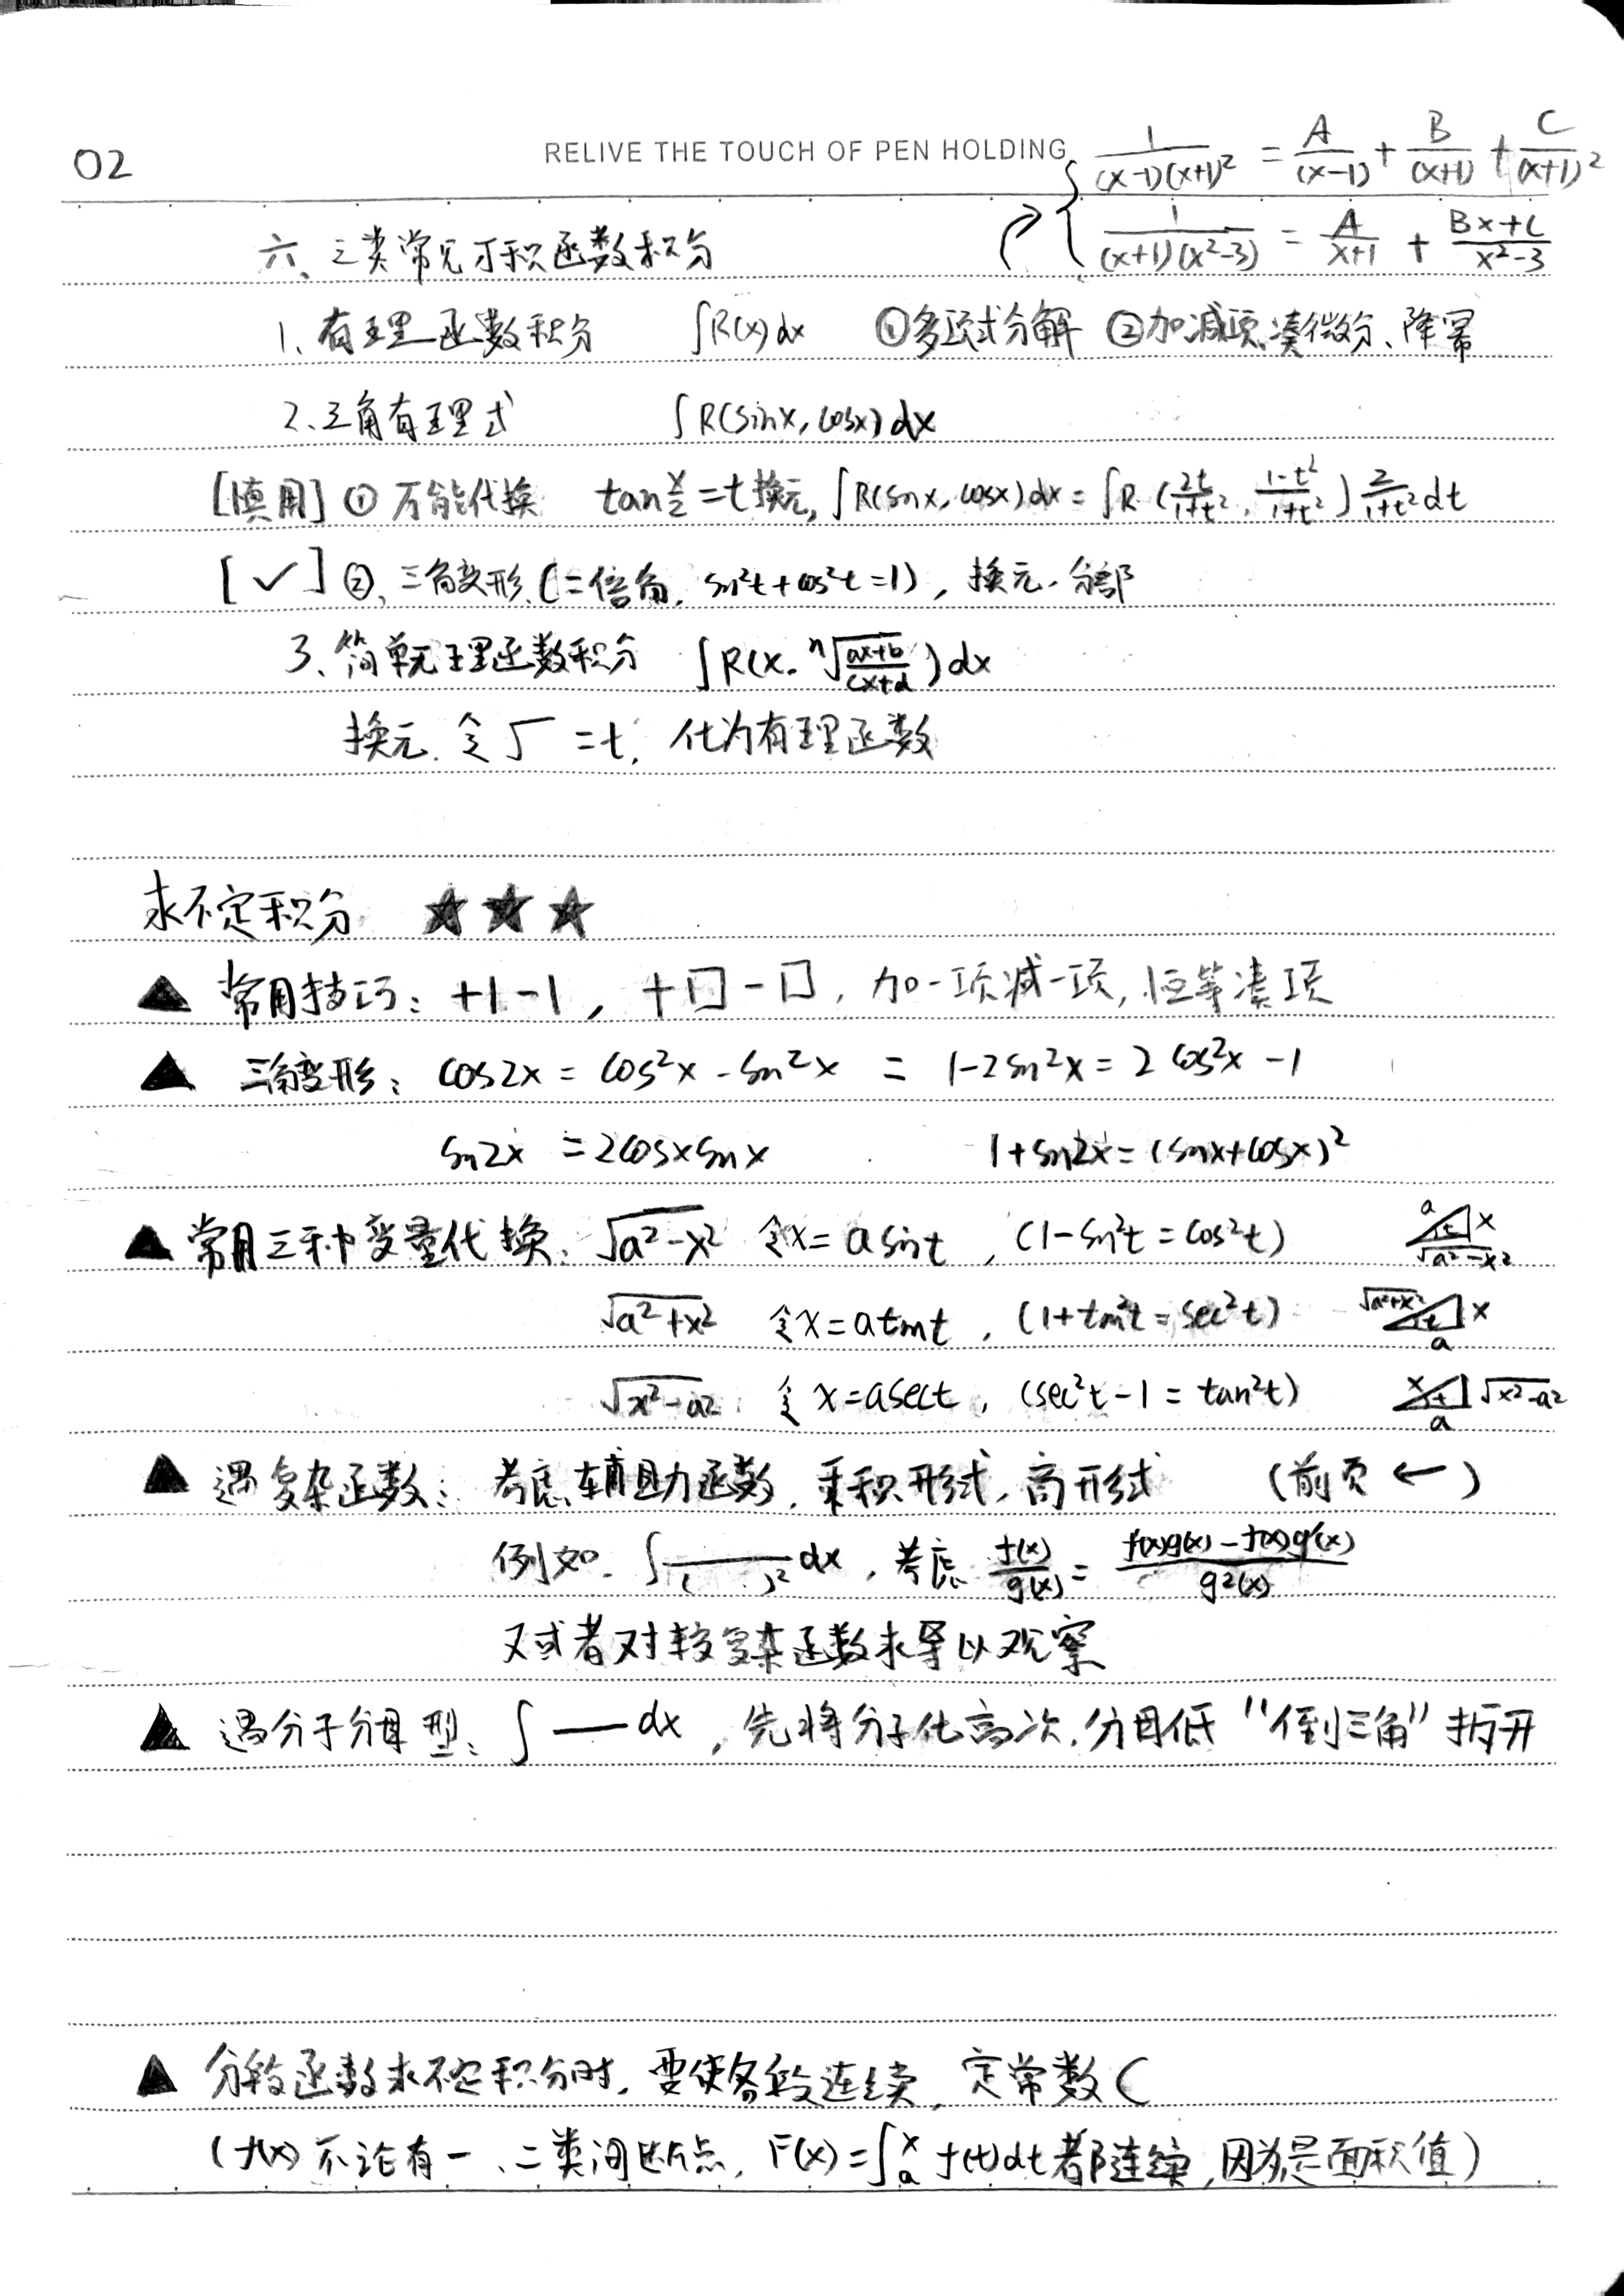 02
RELIVE THE TOUCH OF PEN HOLDING
1/((x-1)(x+1)²) = A/(x-1) + B/(x+1) + C/(x+1)²
1/((x+1)(x²-3)) = A/(x+1) + (Bx+C)/(x²-3)
六、三类常见可积函数积分
1、有理函数积分 ∫R(x)dx ①多项式分解 ②加减项、凑微分、降幂
2、三角有理式 ∫R(sinx, cosx)dx
[慎用] ① 万能代换 tan x/2 = t 换元, ∫R(sinx, cosx)dx = ∫R(2t/(1+t²), (1-t²)/(1+t²)) 2/(1+t²) dt
[✓] ②、三角变形 (二倍角, sin²t+cos²t=1), 换元、分部
3、简单无理函数积分 ∫R(x, ⁿ√((ax+b)/(cx+d)))dx
换元, 令√ = t, 化为有理函数
求不定积分 ★★★
▲ 常用技巧: +1-1, +□-□, 加一项减一项, 恒等凑项
▲ 三角变形: cos2x = cos²x - sin²x = 1-2sin²x = 2cos²x -1
sin2x = 2cosxsinx 1+sin2x = (sinx+cosx)²
▲ 常用三种变量代换: √(a²-x²) 令x = asint, (1-sin²t = cos²t) a t x √(a²-x²)
√(a²+x²) 令x = atant, (1+tan²t = sec²t) √(a²+x²) t x a
√(x²-a²) 令x = asect, (sec²t-1 = tan²t) x t √(x²-a²) a
▲ 遇复杂函数: 考虑辅助函数, 乘积形式, 商形式 (前页←)
例如. ∫ ——/( )² dx, 考虑 f(x)/g(x) = (f'(x)g(x) - f(x)g'(x))/g²(x)
又或者对较复杂函数求导以观察
▲ 遇分子分母型: ∫ — dx, 先将分子化高次, 分母低 "倒三角" 拆开
▲ 分段函数求不定积分时, 要使各段连续, 定常数C
(f(x) 不论有一、二类间断点, F(x) = ∫ₐˣ f(t)dt 都连续, 因为是面积值)